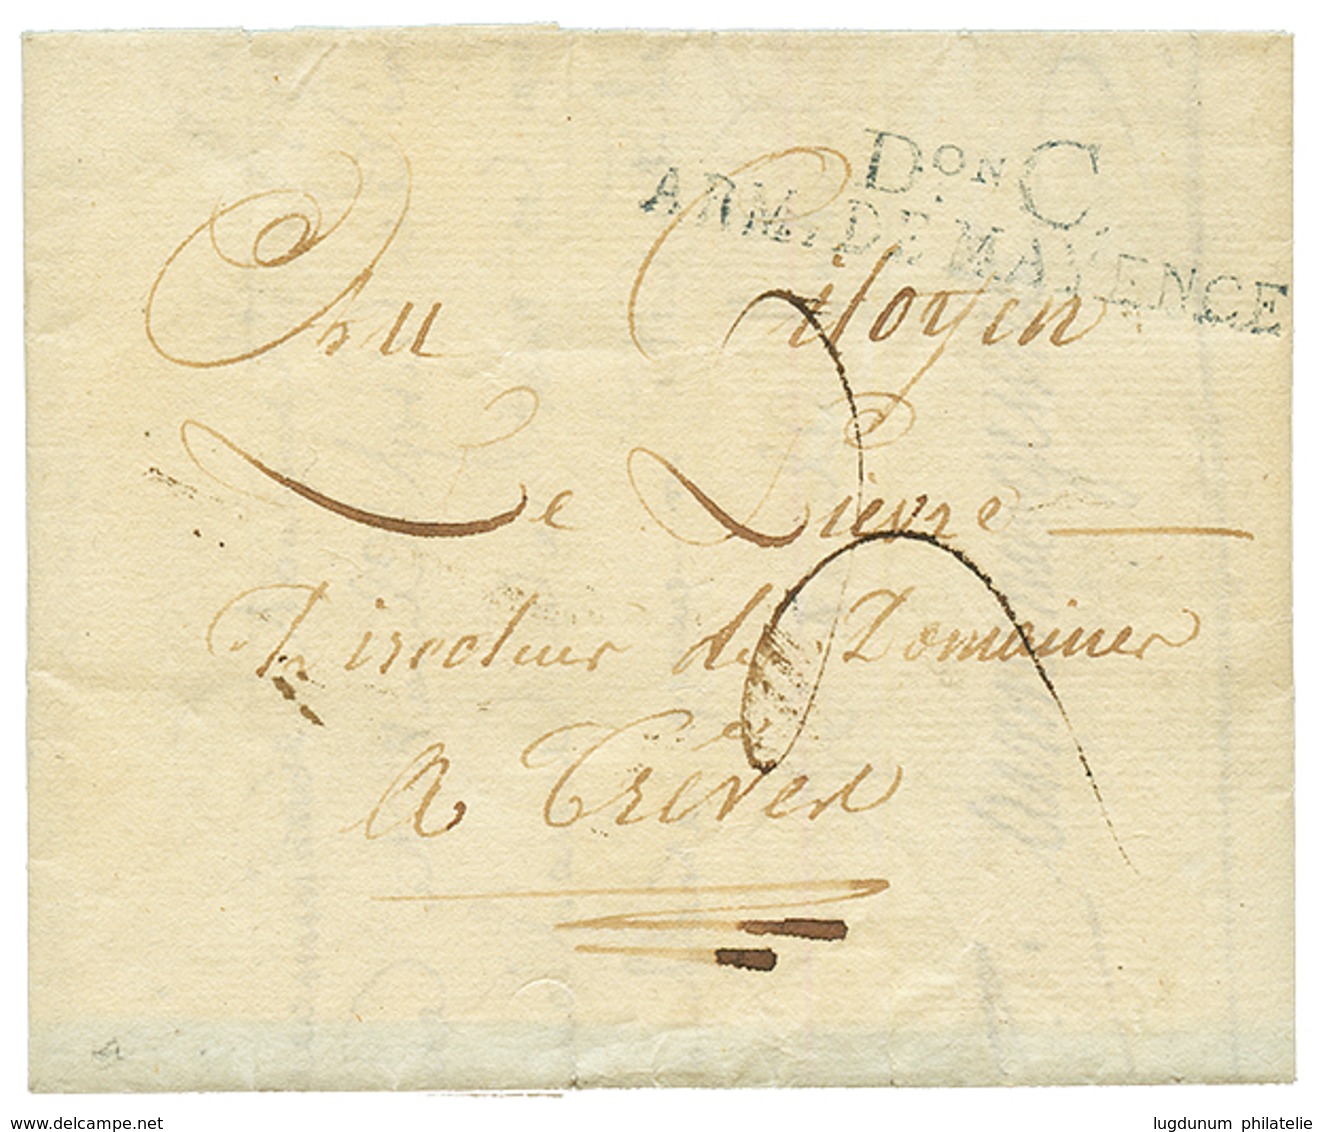 Don C.
ARM. DE MAYENCE
Au Citoyen
Le Lievre
Directeur des Domaines
a Trèves
www.delcampe.net
lugdunum philatelie